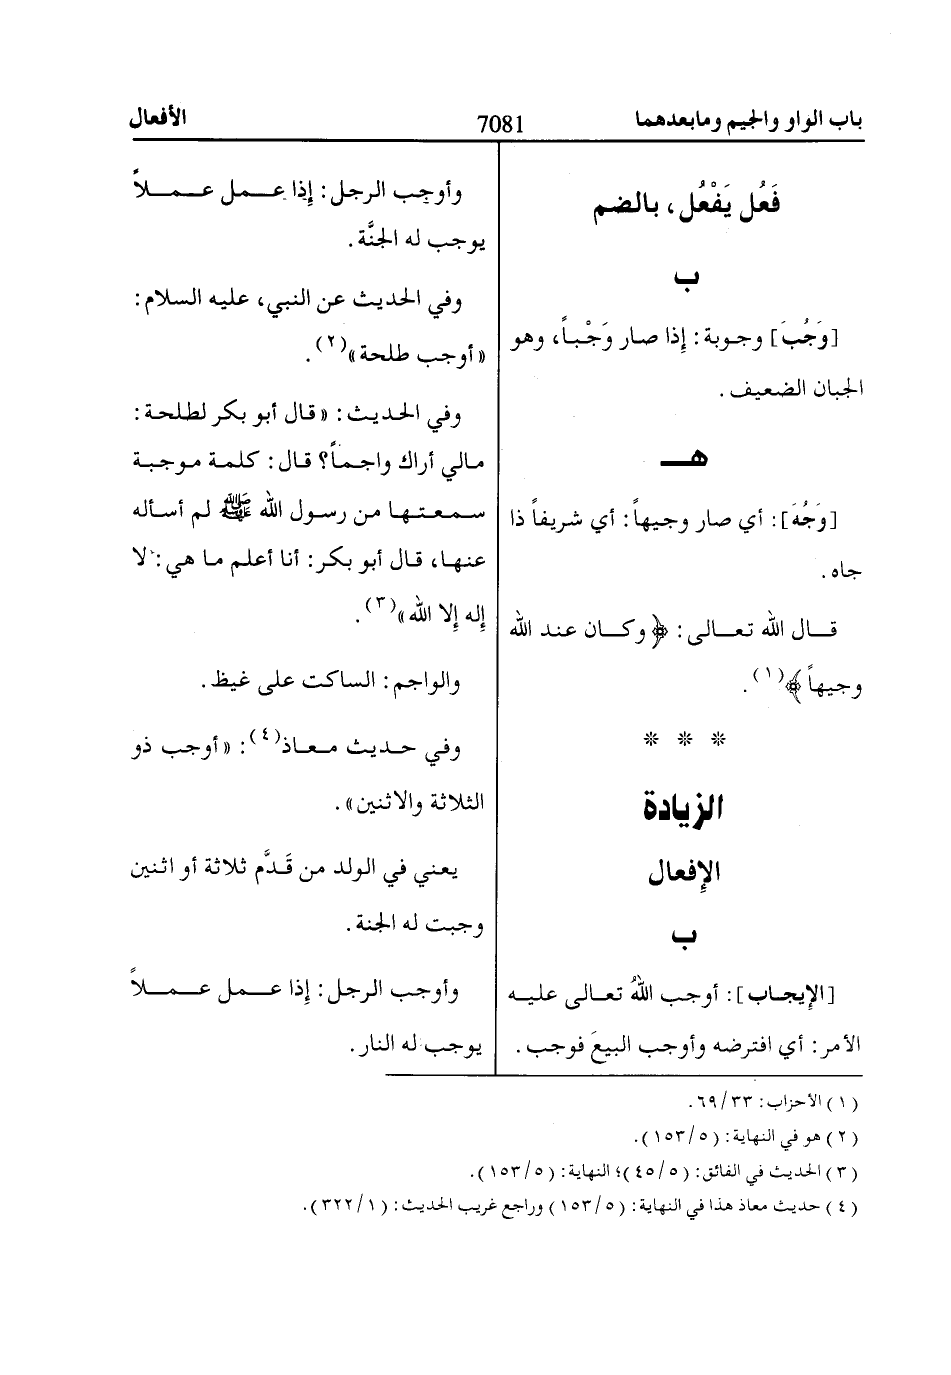 باب الواو والجيم ومابعدهما
7081
الأفعال
فَعُل يَفْعُل، بالضم
ب
[وَجُبَ] وجوبة: إذا صار وَجْباً، وهو
الجبان الضعيف.
هـ
[وَجُهَ]: أي صار وجيهاً: أي شريفاً ذا
جاه.
قال الله تعالى: ﴿وكان عند الله
وجيهاً﴾(١).
* * *
الزيادة
الإفعال
ب
[الإيجاب]: أوجب اللهُ تعالى عليه
الأمر: أي افترضه وأوجب البيعَ فوجب.
وأوجب الرجل: إذا عمل عملاً
يوجب له الجنَّة.
وفي الحديث عن النبي، عليه السلام:
«أوجب طلحة»(٢).
وفي الحديث: «قال أبو بكر لطلحة:
مالي أراك واجماً؟ قال: كلمة موجبة
سمعتها من رسول الله ﷺ لم أسأله
عنها، قال أبو بكر: أنا أعلم ما هي: لا
إله إلا الله»(٣).
والواجم: الساكت على غيظ.
وفي حديث معاذ(٤): «أوجب ذو
الثلاثة والاثنين».
يعني في الولد من قَدَّم ثلاثة أو اثنين
وجبت له الجنة.
وأوجب الرجل: إذا عمل عملاً
يوجب له النار.
(١) الأحزاب: ٦٩/٣٣.
(٢) هو في النهاية: (١٥٣/٥).
(٣) الحديث في الفائق: (٤٥/٥)؛ النهاية: (١٥٣/٥).
(٤) حديث معاذ هذا في النهاية: (١٥٣/٥) وراجع غريب الحديث: (٣٢٢/١).